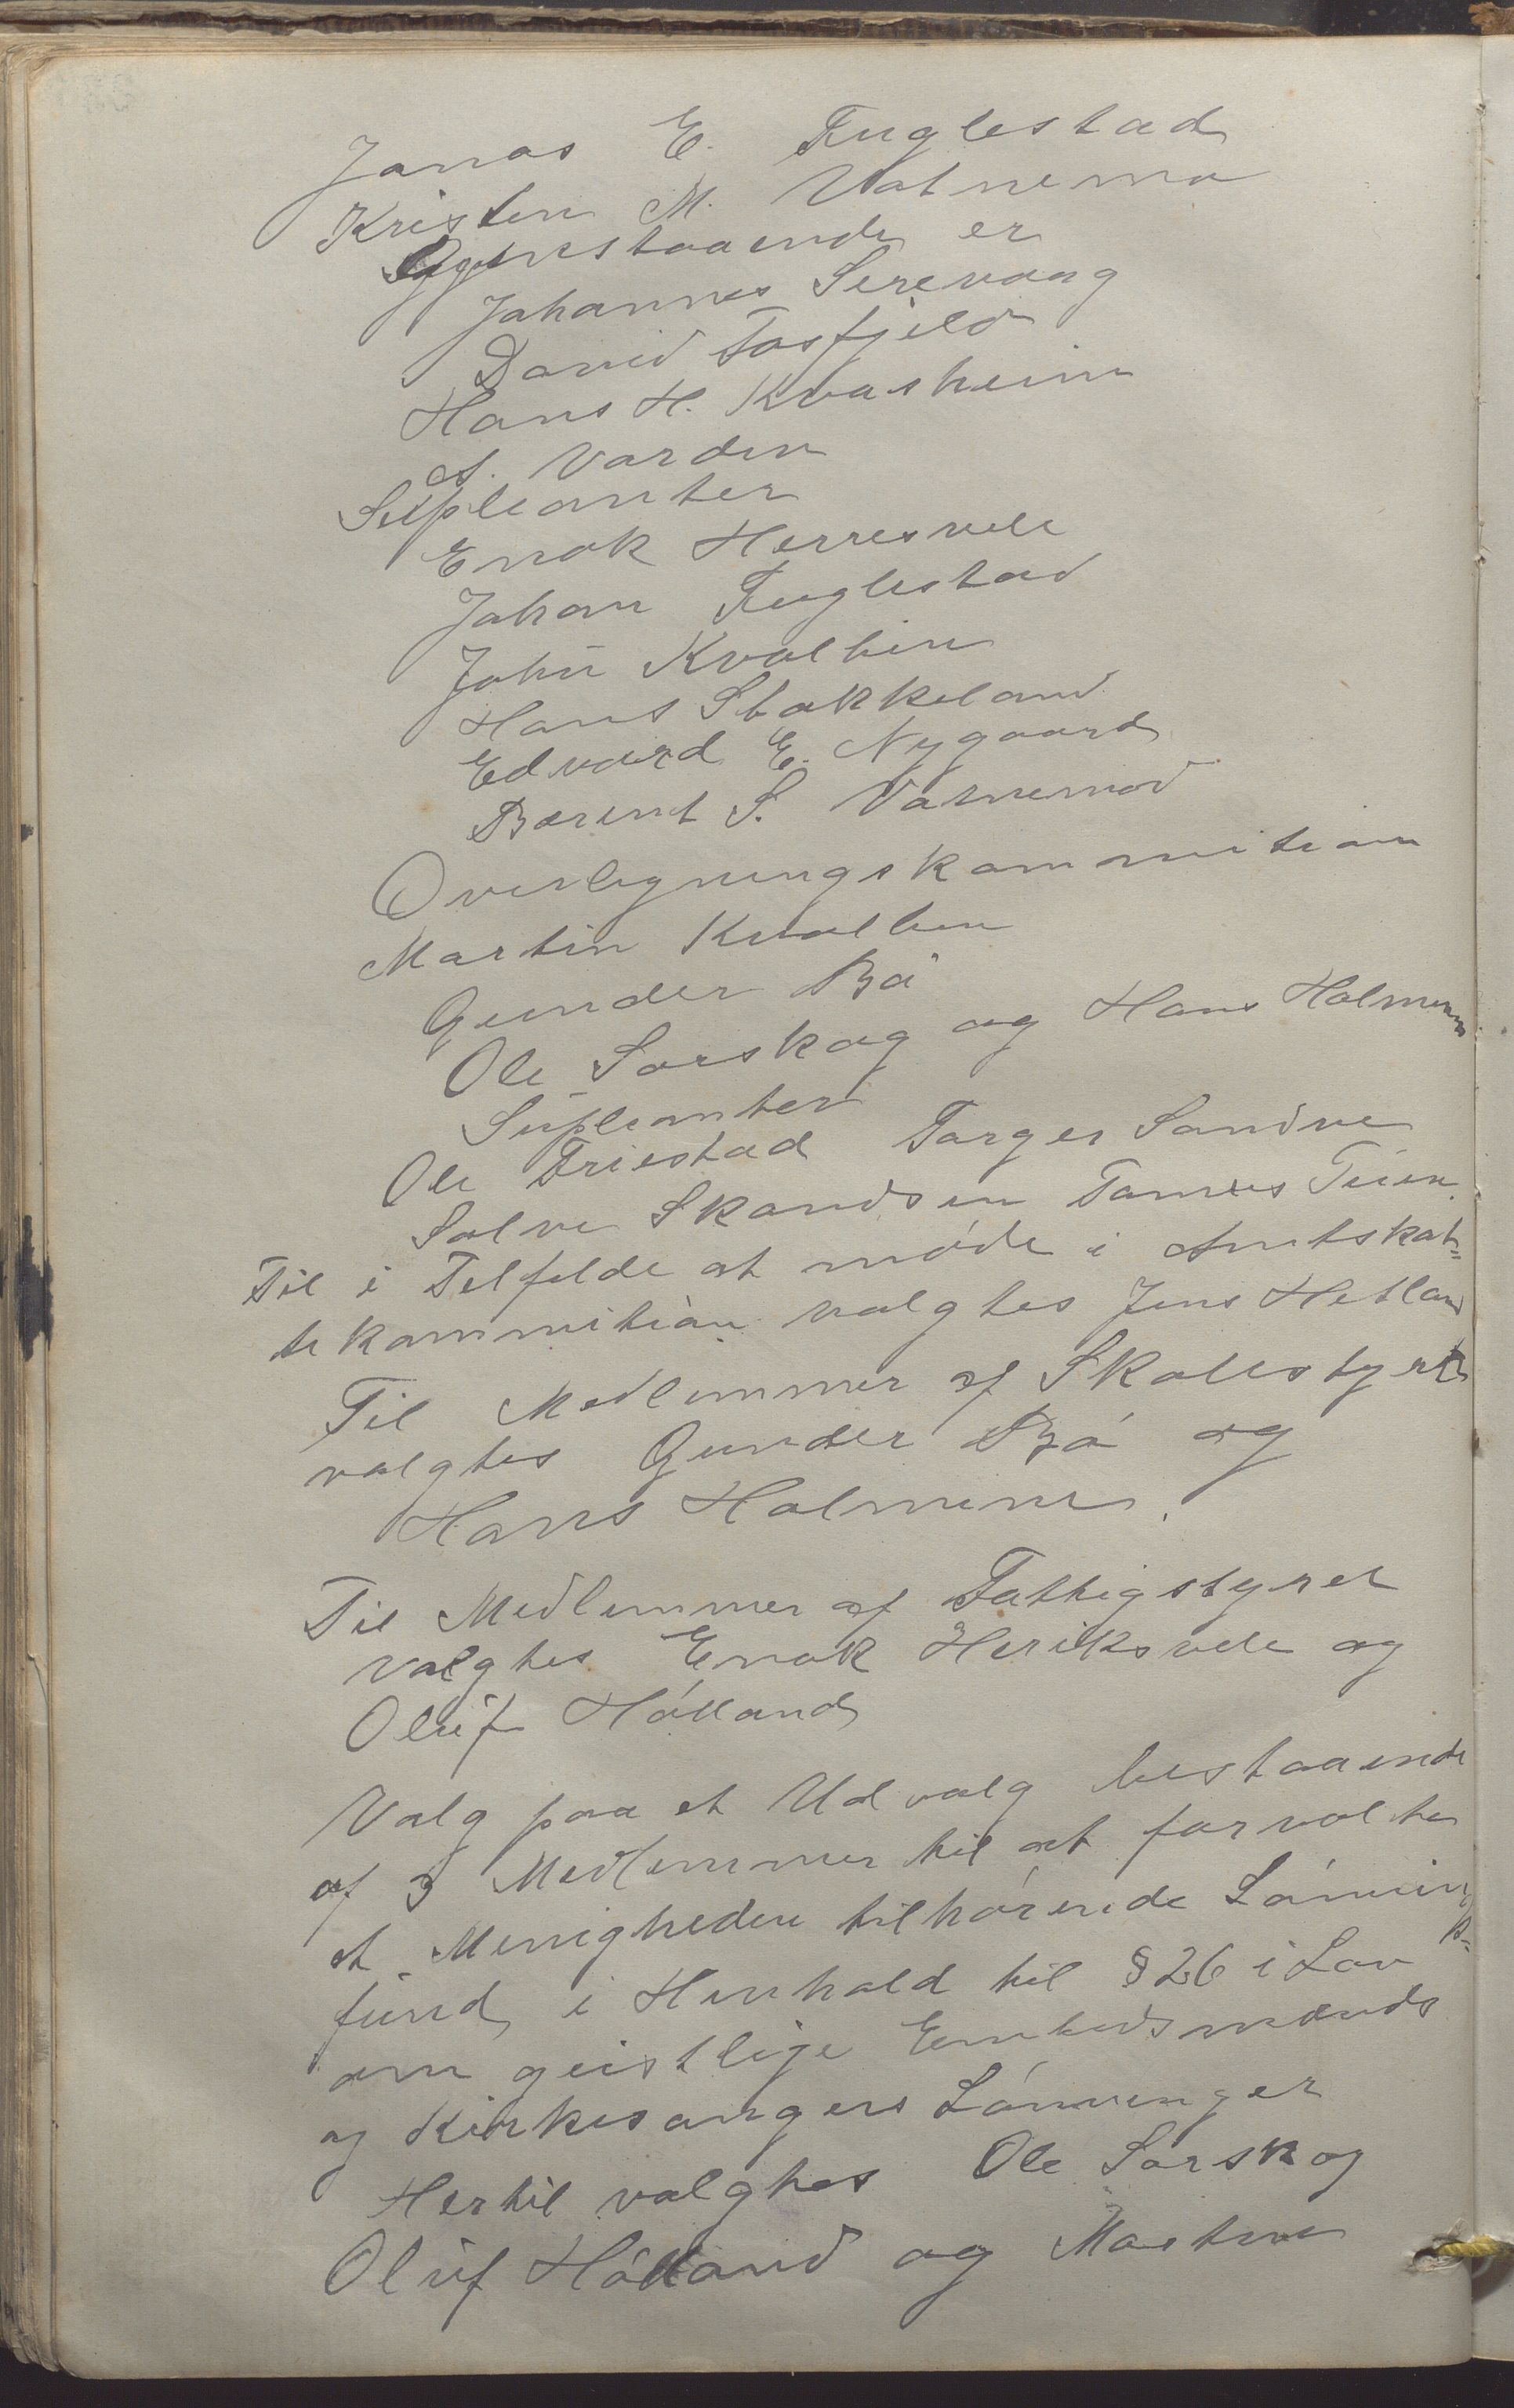 Jonas E. Fuglestad
Kristen M. Vatnemo
Gjenstaaende er
Johannes Sirevaag
David Tosfjeld
Hans H. Kvasheim
A. Varden
Supleanter
Enok Herresvele
Johan Fuglestad
John Kvalbein
Hans Stokkeland
Edvard E. Nygaard
Berent S. Vatnemo
Overligningskommition
Martin Kvalben
Gunder Bø
Ole Sørskog og Hans Holmene
Supleanter
Ole Friestad Torger Sandve
Solve Skandsen Tønnes Tuen.
Til i Tilfelde at møde i Amtskat=
tekommition valgtes Jens Hetland
Til Medlemmer af Skolestyret
valgtes Gunder Bø og
Hans Holmene.
Til Medlemmer af Fattigstyret
valgtes Enok Heriksvele og
Oluf Hølland
Valg paa et Udvalg bestaaende
af 3 Medlemmer til at forvalte
et Menigheden tilhørende Lønnings=
fund i Henhold til § 26 i Lov
om geistlige Embedsmænds
og Kirkesangers Lønninger
Hertil valgtes Ole Sørskog
Oluf Hølland og Martin